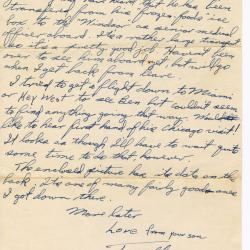 that he has been
transferred from his "frozen foods" ice
box to the Windsor as senior medical
officer aboard. It's a rather huge transport
so it's a pretty good job. Haven't been
over to see him aboard yet, but will go
when I get back from leave.
I tried to get a flight down to Miami
or Key West to see Ben but couldn't seem
to find anything going that way. Would
like to hear first hand of his Chicago visit!
It looks as though I'll have to wait quite
some time to do that, however.
The enclosed picture has its data on the
back. It's one of many fairly good ones
I got down there.
More later
Love from your son